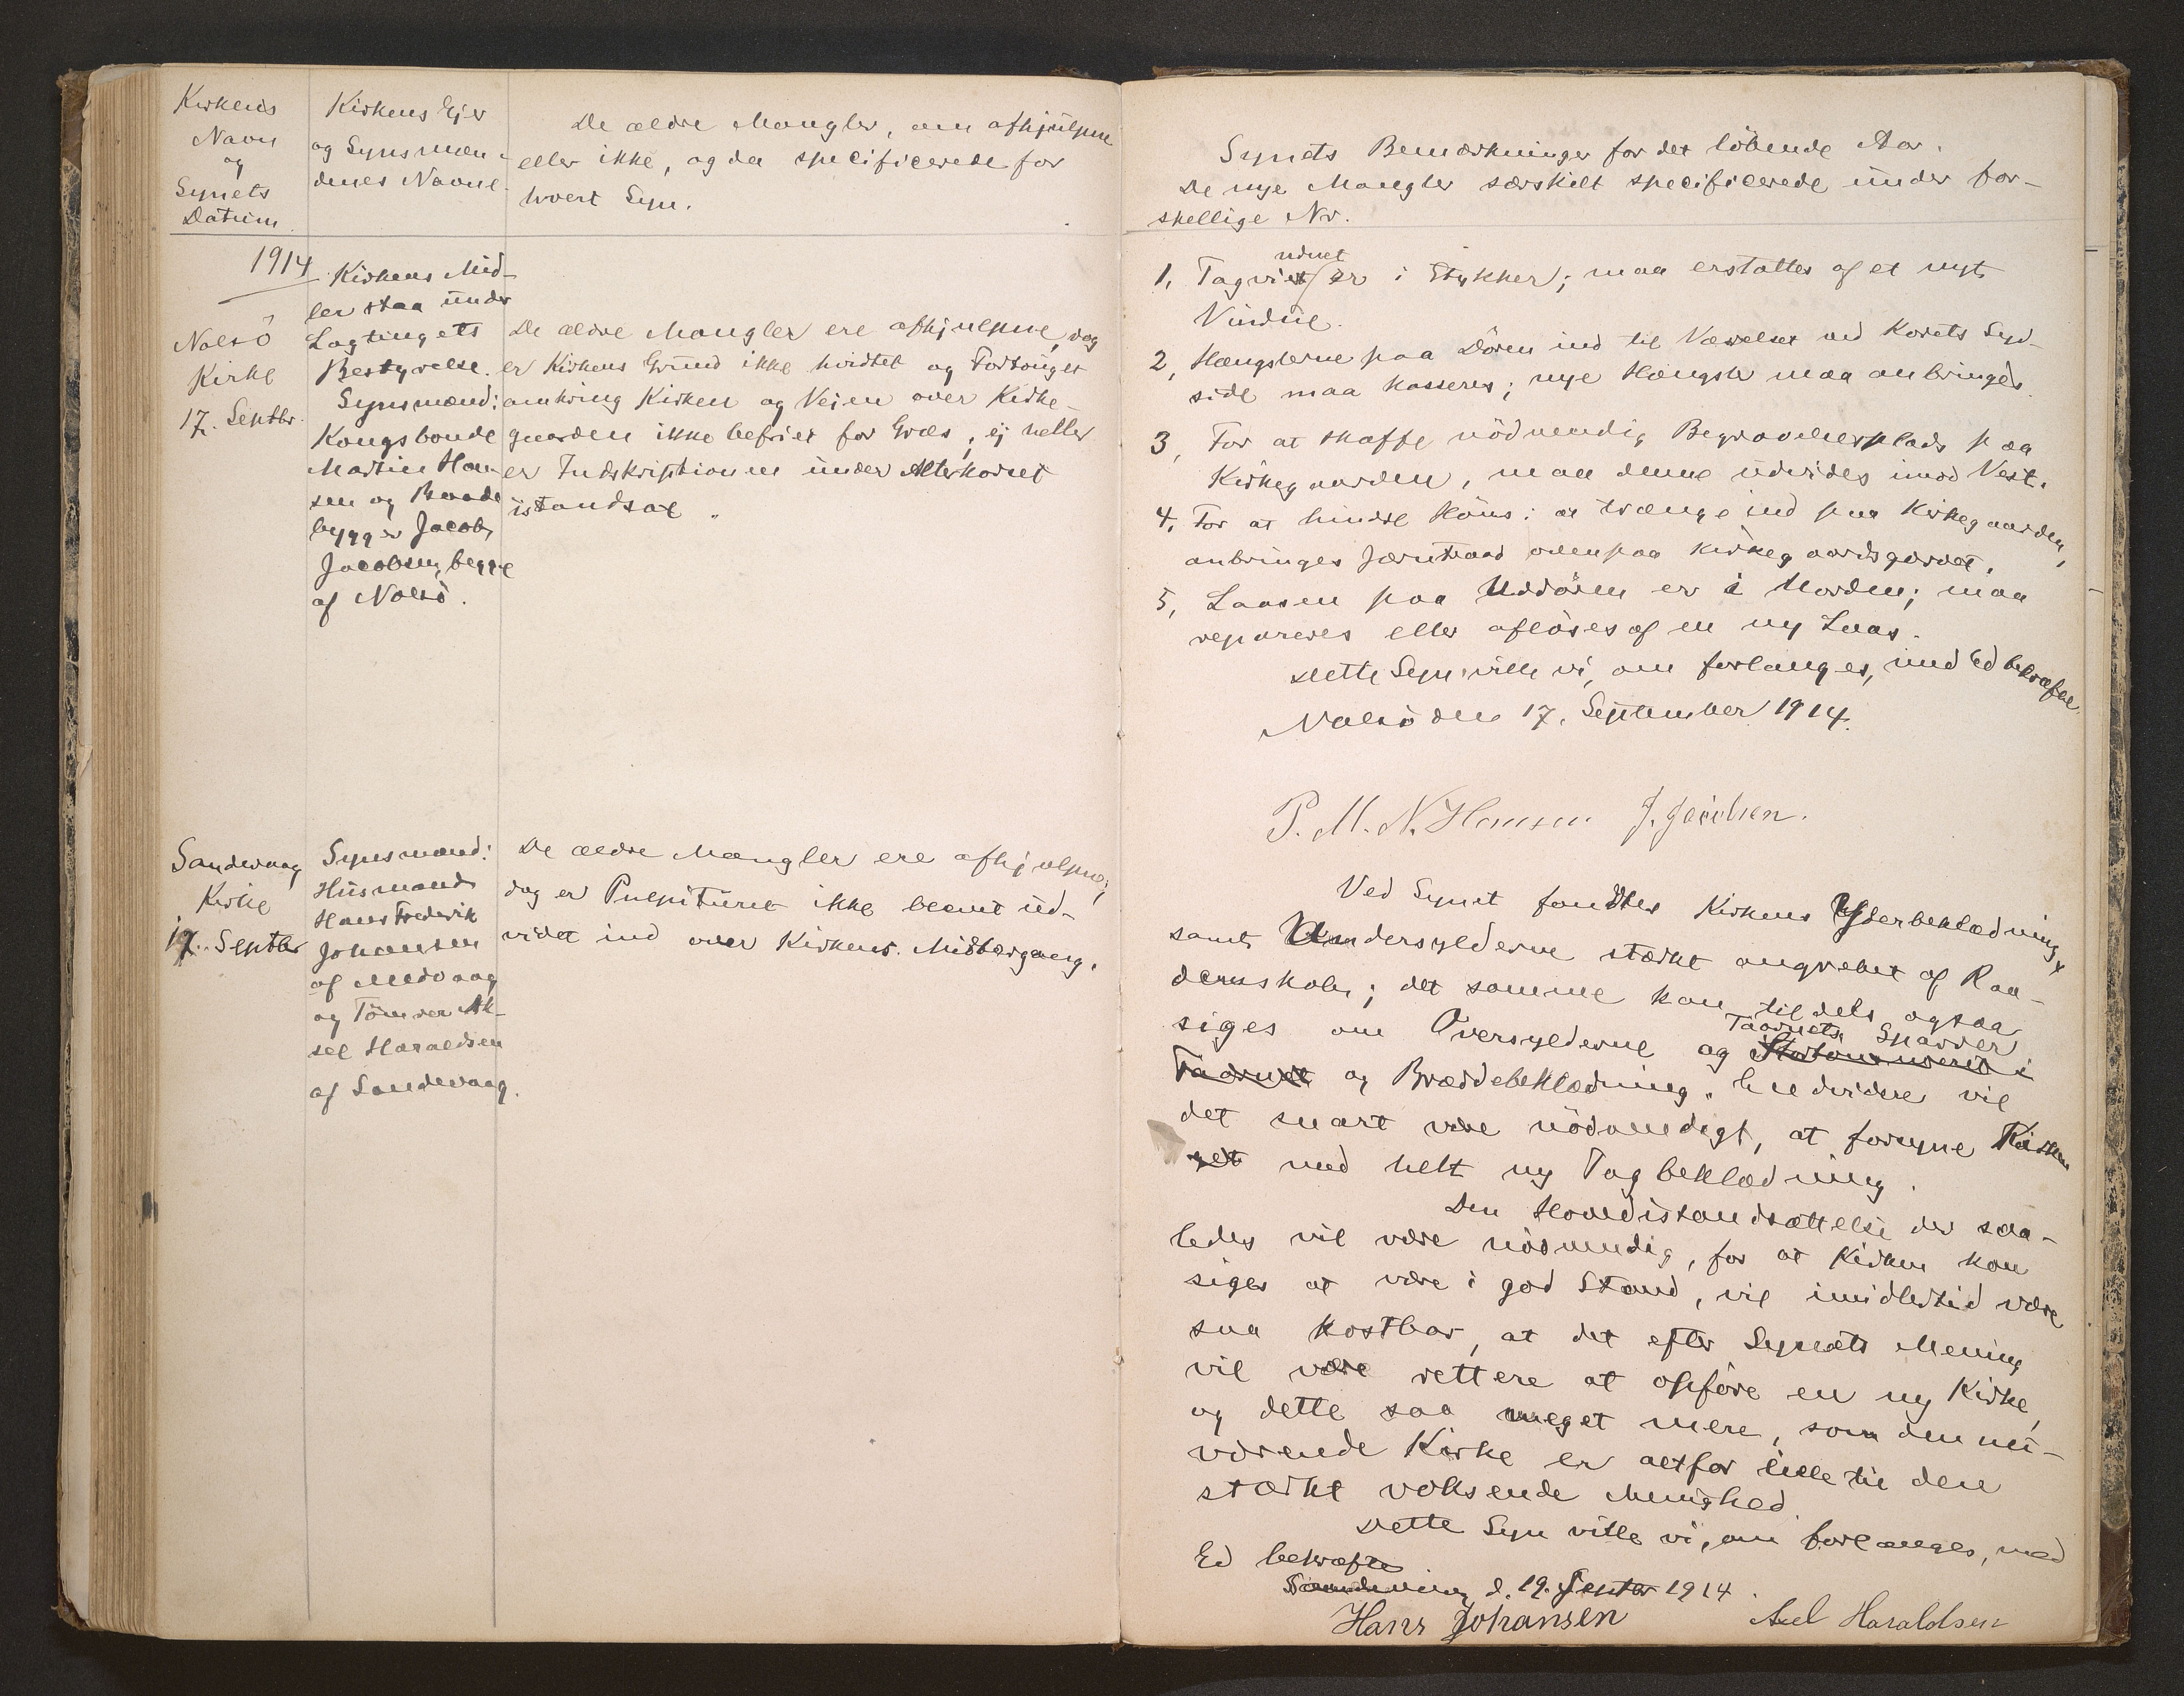 Kirkens
Navn
og
Synets
Datum.
Kirkens Ejer
og Synsmæn-
denes Navne.
De ældre Mangler, om afhjulpne
eller ikke, og da specificerede for
hvert Syn.
1914
Nolsö
Kirke
17. Septbr.
Kirkens Mid-
ler staa under
Lagtingets
Bestyrelse.
Synsmænd:
Kongsbonde
Martin Han-
sen og Baade
bygger Jacob
Jacobsen, begge
af Nolsö.
De ældre Mangler ere afhjulpne, dog
er Kirkens Grund ikke hvidtet og Fortouget
omkring Kirken og Vejen over Kirke-
gaarden ikke befriet for Græs, ej heller
er Indskriptionen under Alterkoret
istandsat.
Sandevaag
Kirke
17. Septbr
Synsmænd:
Husmand
Hans Frederik
Johansen
af Midvaag
og Tömrer Ak-
sel Haraldsen
af Sandevaag.
De ældre Mangler ere afhjulpne;
dog er Pulpituret ikke blevet ud-
videt ind over Kirkens Midtergang.
Synets Bemærkninger for det löbende Aar.
De nye Mangler særskilt specificerede under for-
skellige Nr.
1, Tagvinduet er i Stykker; maa erstattes af et nyt
Vindue.
2, Hængslerne paa Dören ind til Værelset ved Korets Syd-
side maa kasseres; nye Hængsler maa anbringes.
3, For at skaffe nödvendig Begravelsesplads paa
Kirkegaarden, maa denne udvides imod Vest.
4, For at hindre Höns i at trænge ind paa Kirkegaarden,
anbringes Jærntraad ovenpaa Kirkegaardsgærdet.
5, Laasen paa Uddören er i Uorden; maa
repareres eller aflöses af en ny Laas.
Dette Syn ville vi, om forlanges, med Ed bekræfte.
Nolsö den 17. September 1914.
P. M. N. Hansen J. Jacobsen.
Ved Synet fandtes Kirkens Yderbeklædning
samt Undersylderne stærkt angrebet af Raa-
denskab; det samme kan tildels ogsaa
siges om Oversylderne og Taarnets Spærrer
og Bræddebeklædning. Endvidere vil
det snart være nödvendigt, at forsyne Kirken
med helt ny Tagbeklædning.
Den Hovedistandsættelse der saa-
ledes vil være nödvendig, for at Kirken kan
siges at være i god Stand, vil imidlertid være
saa kostbar, at det efter Synets Mening
vil være rettere at opföre en ny Kirke,
og dette saa meget mere, som den nu-
værende Kirke er altfor lille til den
stærkt voksende Menighed.
Dette Syn ville vi, om forlanges, med
Ed bekræfte
Sandevaag d. 19. Septbr 1914.
Hans Johansen Axel Haraldsen